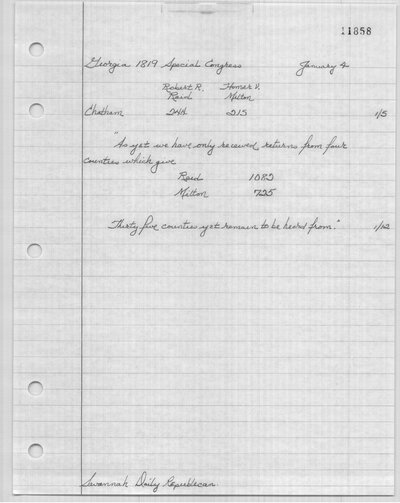 11858
Georgia 1819 Special Congress January 4
Robert R. Homer V.
Reid Milton
Chatham 244 215 1/5
"As yet we have only received returns from four
counties which give
Reid 1082
Milton 725
Thirty five counties yet remain to be heard from." 1/12
Savannah Daily Republican